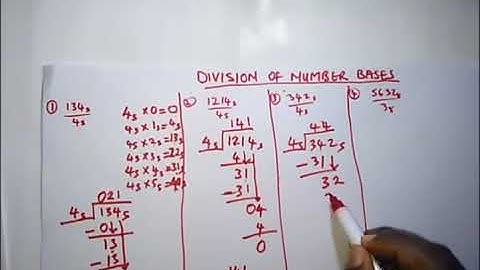 DIVISION OF NUMBER BASES
① 134₅
4₅
4₅ x 0 = 0
4₅ x 1₅ = 4₅
4₅ x 2₅ = 13₅
4₅ x 3₅ = 22₅
4₅ x 4₅ = 31₅
4₅ x 5₅ =
021
4₅ 134₅
-0
13
-13
② 1214₅
4₅
141
4₅ 1214₅
4
31
-31
04
4
0
③ 342₅
4₅
44
4₅ 342₅
-31
32
④